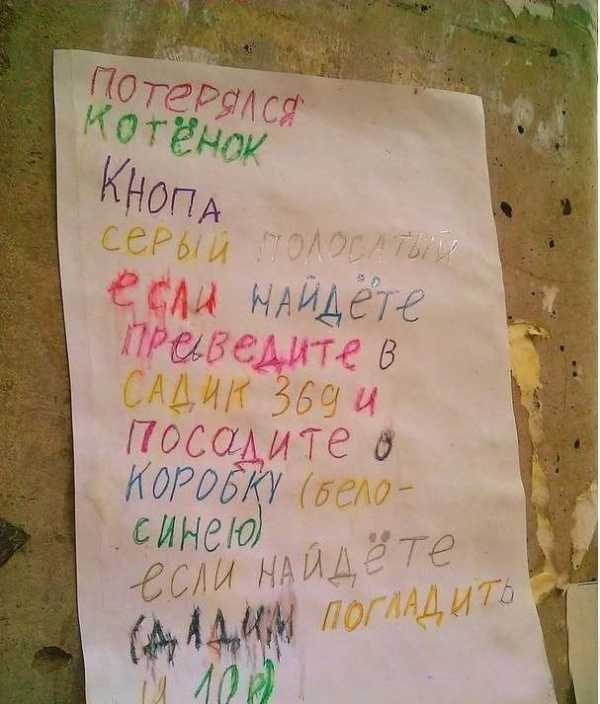 ПОТЕРЯЛСЯ
КОТЁНОК
КНОПА
СЕРЫЙ ПОЛОСАТЫЙ
ЕСЛИ НАЙДЁТЕ
ПРЕВЕДИТЕ В
САДИК 369 И
ПОСАДИТЕ В
КОРОБКУ (БЕЛО-
СИНЕЮ)
ЕСЛИ НАЙДЁТЕ
ДАДИМ ПОГЛАДИТЬ
И 10 р